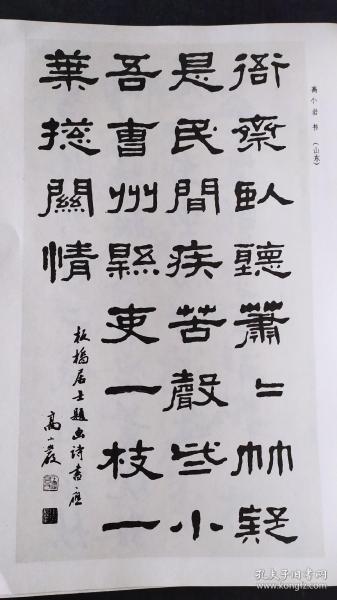 高小岩 书 (山东)
衙齋臥聽蕭〻竹疑
是民間疾苦聲些小
吾曹州縣吏一枝一
葉摠關情
板橋居士題画詩書應
高小巖
孔夫子旧书网